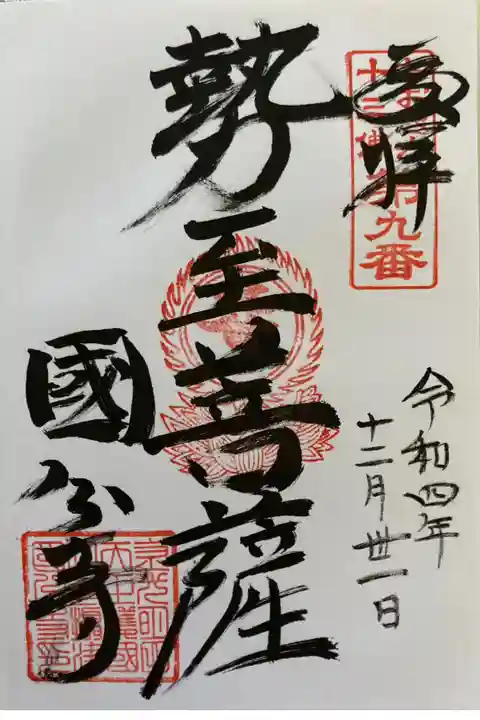 奉拝
十三佛
第九番
令和四年
十二月卅一日
勢至菩薩
國分寺